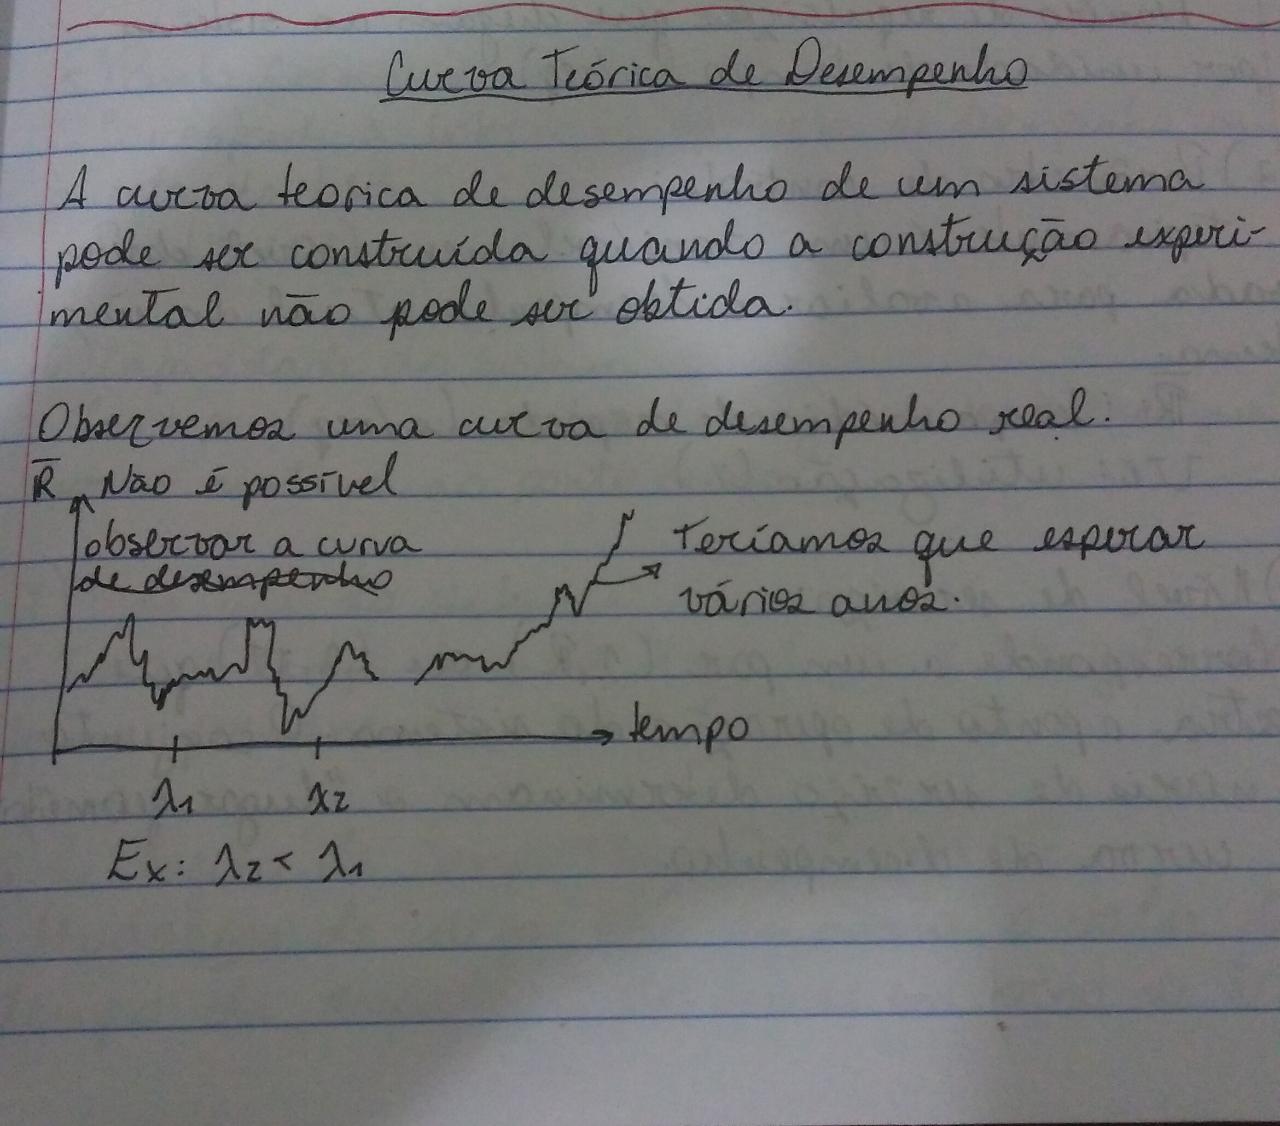 Curva Teórica de Desempenho
A curva teorica de desempenho de um sistema
pode ser construída quando a construção experi-
mental não pode ser obtida.
Observemos uma curva de desempenho real.
R̅ Não é possível
observar a curva
de desempenho
Teríamos que esperar
vários anos.
tempo
λ1 λ2
Ex: λ2 < λ1